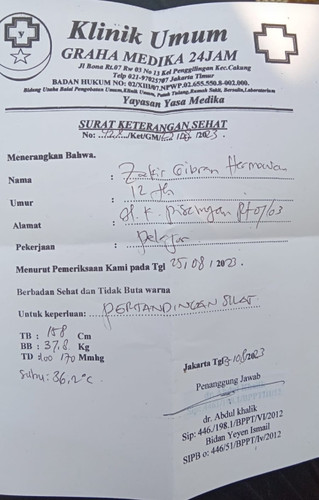 Klinik Umum
GRAHA MEDIKA 24JAM
Jl Bona Rt.07 Rw 03 No 13 Kel Penggilingan Kec.Cakung
Telp 021-97025707 Jakarta Timur
BADAN HUKUM NO: 02/XIII/07.NPWP.02.655.550.8-002.000.
Bidang Usaha Balai Pengobatan Umum, Klinik Umum, Patah Tulang, Rumah Sakit, Bersalin, Laboratorium
Yayasan Yasa Medika
SURAT KETERANGAN SEHAT
No: /Ket/GM/ /2023.
Menerangkan Bahwa.
Nama : Zakir Gibran Hermawan
Umur : 12 th
Alamat : Jl. K. Pisangan Rt 07/03
Pekerjaan : pelajar
Menurut Pemeriksaan Kami pada Tgl 25/08/2023.
Berbadan Sehat dan Tidak Buta warna
Untuk keperluan: PERTANDINGAN SILAT
TB : 158 Cm
BB : 37,8 Kg
TD 100 170 Mmhg
Suhu: 36,2°c
Jakarta Tgl
Penanggung Jawab
dr. Abdul khalik
Sip: 446./198.1/BPPT/VI/2012
Bidan Yeyen Ismail
SIPB o: 446/51/BPPT/Iv/2012